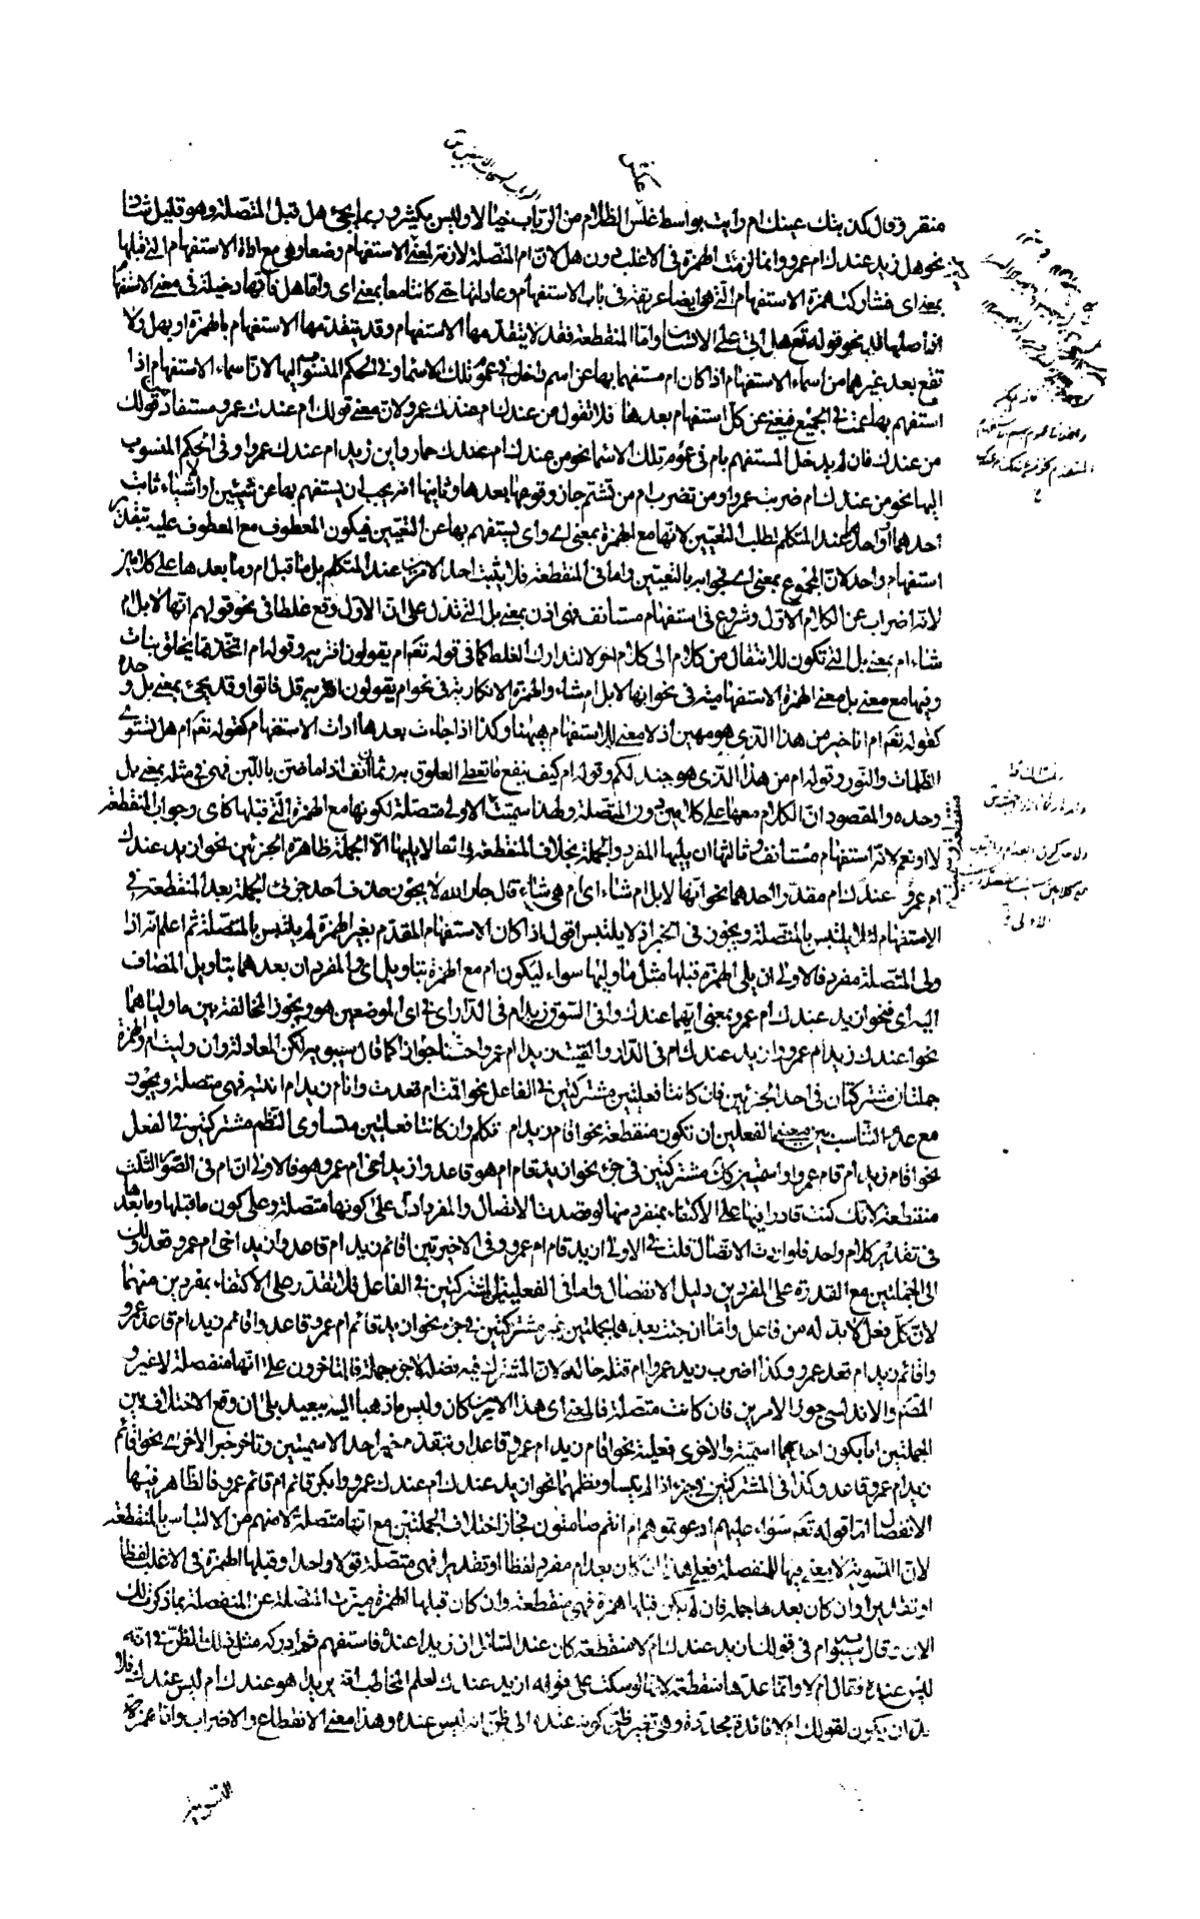 منقر وقال كذبتك عينك ام رايت بواسط غلس الظلام من الرباب خيالا وليس بكثير وربما يجئ هل قبل المتصلة وهو قليل شاذ
نحو هل زيد عندك ام عمرو وانما لزمت الهمزة فى الاغلب دون هل لان ام المتصلة لازمة لمعنى الاستفهام وضعا وهى مع اداة الاستفهام التى قبلها
بمعنى اى فشاركت همزة الاستفهام التى هى ايضا عريقة فى باب الاستفهام وعادلتها حتى كانتا معا بمعنى اى واما هل فانها دخيلة فى معنى الاستفهام
اذ اصلها قد نحو قوله تع هل اتى على الانسان واما المنقطعة فقد لا يتقدمها الاستفهام وقد يتقدمها الاستفهام بالهمزة او بهل ولا
تقع بعد غيرهما من اسماء الاستفهام اذا كان ام مستفهما بها عن اسم داخل فى عموم تلك الاسماء وفى الحكم المنسوب اليها لان اسماء الاستفهام اذا
استفهم بها عمت فى الجميع فيغنى عن كل استفهام بعدها فلا تقول من عندك ام عندك عمرو لان معنى قولك ام عندك عمرو مستفاد من قولك
من عندك فان لم يدخل المستفهم بام فى عموم تلك الاسماء نحو من عندك ام عندك حمار واين زيد ام عندك عمرو او فى الحكم المنسوب
اليها نحو من عندك ام ضربت عمرا ومن تضرب ام من تشتم جاز وقوعها بعدها وثانيها انه يجب ان يستفهم بها عن شيئين او اشياء ثابت
احدهما او احدها عند المتكلم لطلب التعيين لانها مع الهمزة بمعنى اى واى يستفهم بها عن التعيين فيكون المعطوف مع المعطوف عليه بتقدير
استفهام واحد لان المجموع بمعنى اى فجوابه بالتعيين واما فى المنقطعة فلا يثبت احد الامرين عند المتكلم بل ما قبل ام وما بعدها على كلامين
لانه اضراب عن الكلام الاول وشروع فى استفهام مستانف فهى اذن بمعنى بل التى تدل على ان الاول وقع غلطا فى نحو قولهم انها لابل ام
شاء ام بمعنى بل التى تكون للانتقال من كلام الى كلام اخر لا لتدارك الغلط كما فى قوله تع ام يقولون افتريه وقوله ام اتخذ مما يخلق بنات
وفيها مع معنى بل معنى الهمزة الاستفهامية فى نحو انها لابل ام شاء والهمزة الانكارية فى نحو ام يقولون افتريه قل فاتوا وقد يجئ بمعنى بل وحده
كقوله تع ام انا خير من هذا الذى هو مهين اذ لا معنى للاستفهام هيهنا وكذا اذا جاءت بعدها ادات الاستفهام كقوله تع ام هل تستوى
الظلمات والنور وقوله ام من هذا الذى هو جند لكم وقوله ام كيف ينفع ما تعطى العلوق به رئمان انف اذا ما ضن باللبن فهى فى مثله بمعنى بل
وحده والمقصود ان الكلام معها على كلامين دون المتصلة ولهذا سميت الاولى متصلة لكونها مع الهمزة التى قبلها كاى وجواب المنقطعة
لا او نعم لانه استفهام مستانف وثالثها ان يليها المفرد والجملة بخلاف المنقطعة فانها لا يليها الا الجملة ظاهرة الجزئين نحو ازيد عندك
ام عمرو عندك ام مقدرا احدهما نحو انها لابل ام شاء اى ام هى شاء قال جار الله لا يجوز حذف احد جزئى الجملة بعد المنقطعة فى
الاستفهام لئلا يلتبس بالمتصلة ويجوز فى الخبر اذ لا يلتبس اقول اذا كان الاستفهام المقدم بغير الهمزة لم يلتبس بالمتصلة ثم اعلم انه اذا
ولى المتصلة مفرد فالاولى ان يلى الهمزة قبلها مثل ما وليها سواء ليكون ام مع الهمزة بتاويل اى والمفردان بعدهما بتاويل المضاف
اليه اى فنحو ازيد عندك ام عمرو بمعنى ايهما عندك وافى السوق زيد ام فى الدار اى فى اى الموضعين هو ويجوز المخالفة بين ما ولياهما
نحو اعندك زيد ام عمرو وازيد عندك ام فى الدار والقيت زيدا ام عمرا حسنا جوازا كما قال سيبويه لكن المعادلة وان وليت ام والهمزة
جملتان مشتركتان فى احد الجزئين فان كانتا فعليتين مشتركتين فى الفاعل نحو اقمت ام قعدت واقام زيد ام فهى متصلة ويجوز
مع عدم التناسب بين معنى الفعلين ان تكون منقطعة نحو اقام زيد ام تكلم وان كانتا فعليتين متساوى النظم مشتركتين فى الفعل
نحو اقام زيد ام قام عمرو او اسميتين كك مشتركتين فى جزء نحو ازيد قام ام هو قاعد وازيد اخى ام عمرو هو فالاولى ان ام فى الصور الثلث
منقطعة لانك كنت قادرا فيها على الاكتفاء بمفرد منها لو قصدت الاتصال والمفرد ادل على كونها متصلة وعلى كون ما قبلها وما بعدها
فى تقدير كلام واحد فلو اردت الاتصال قلت فى الاولى ازيد قام ام عمرو وفى الاخيرتين اقائم زيد ام قاعد وازيد اخى ام عمرو فعدولك
الى الجملتين مع القدرة على المفردين دليل الانفصال واما فى الفعليتين المشتركتين فى الفاعل فلا تقدر على الاكتفاء بمفردين منهما
لان كل فعل لا بد له من فاعل واما ان جئت بعدها بجملتين غير مشتركتين فى جزء نحو ازيد قائم ام عمرو قاعد واقائم زيد ام قاعد عمرو
واقائم زيد ام قعد عمرو وكذا اضرب زيد عمرا ام قتله خالد لان المشترك فيه فضلة لا جزء جملة فالمتاخرون على انها منفصلة لا غير و
المص والاندلسى جوزا الامرين فان كانت متصلة فالمعنى اى هذا الامرين كان وليس ما ذهبا اليه ببعيد بلى ان وقع الاختلاف بين
الجملتين اما بكون احديهما اسمية والاخرى فعلية نحو اقام زيد ام عمرو قاعد او بتقدم خبر احد الاسميتين وتاخر خبر الاخرى نحو اقائم
زيد ام عمرو قاعد وكذا فى المشتركتين فى جزء اذا لم يتساو نظمهما نحو ازيد عندك ام عندك عمرو وابكر قائم ام قائم عمرو فالظاهر فيها
الانفصال اما قوله تع سواء عليهم ادعوتموهم ام انتم صامتون فجاز اختلاف الجملتين مع انها متصلة لامنهم من الالتباس بالمنقطعة
لان التسوية لا معنى فيها للمنفصلة فعلى هذا ان كان بعد ام مفرد لفظا او تقديرا فهى متصلة قولا واحدا وقبلها الهمزة فى الاغلب لفظا
او تقديرا وان كان بعدها جملة فان لم يكن قبلها همزة فهى منقطعة وان كان قبلها الهمزة ميزت المتصلة عن المنفصلة بما ذكرت لك
الان قال سيبويه ام فى قولك ازيد عندك ام لا منقطعة كان عند السائل ان زيدا عنده فاستفهم ثم ادركه مثل ذلك الظن فى انه
ليس عنده فقال ام لا وانما عدها منقطعة لانه لو سكت على قوله ازيد عندك لعلم المخاطب انه يريد اهو عندك ام ليس عندك فلا
بد ان يكون لقولك ام لا فائدة مجددة وهى تغير ظن كونه عنده الى ظن انه ليس عنده وهذا معنى الانقطاع والاضراب واما همزة
التسوية